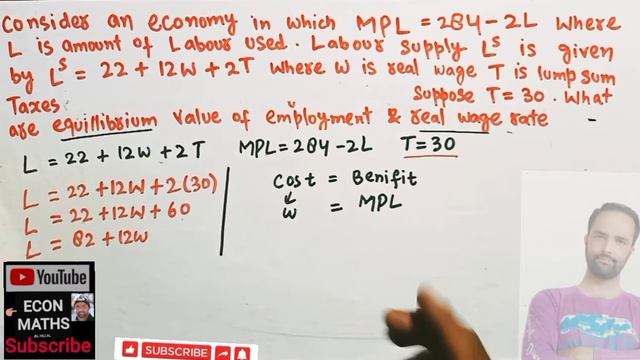 Consider an economy in which MPL = 284 - 2L where
L is amount of Labour used. Labour supply L^s is given
by L^s = 22 + 12W + 2T where W is real wage T is lump sum
Taxes. Suppose T = 30. What
are equillibrium value of employment & real wage rate
L = 22 + 12W + 2T MPL = 284 - 2L T = 30
L = 22 + 12W + 2(30)
L = 22 + 12W + 60
L = 82 + 12W
Cost = Benifit
W = MPL
YouTube
ECON
MATHS
Subscribe
SUBSCRIBE